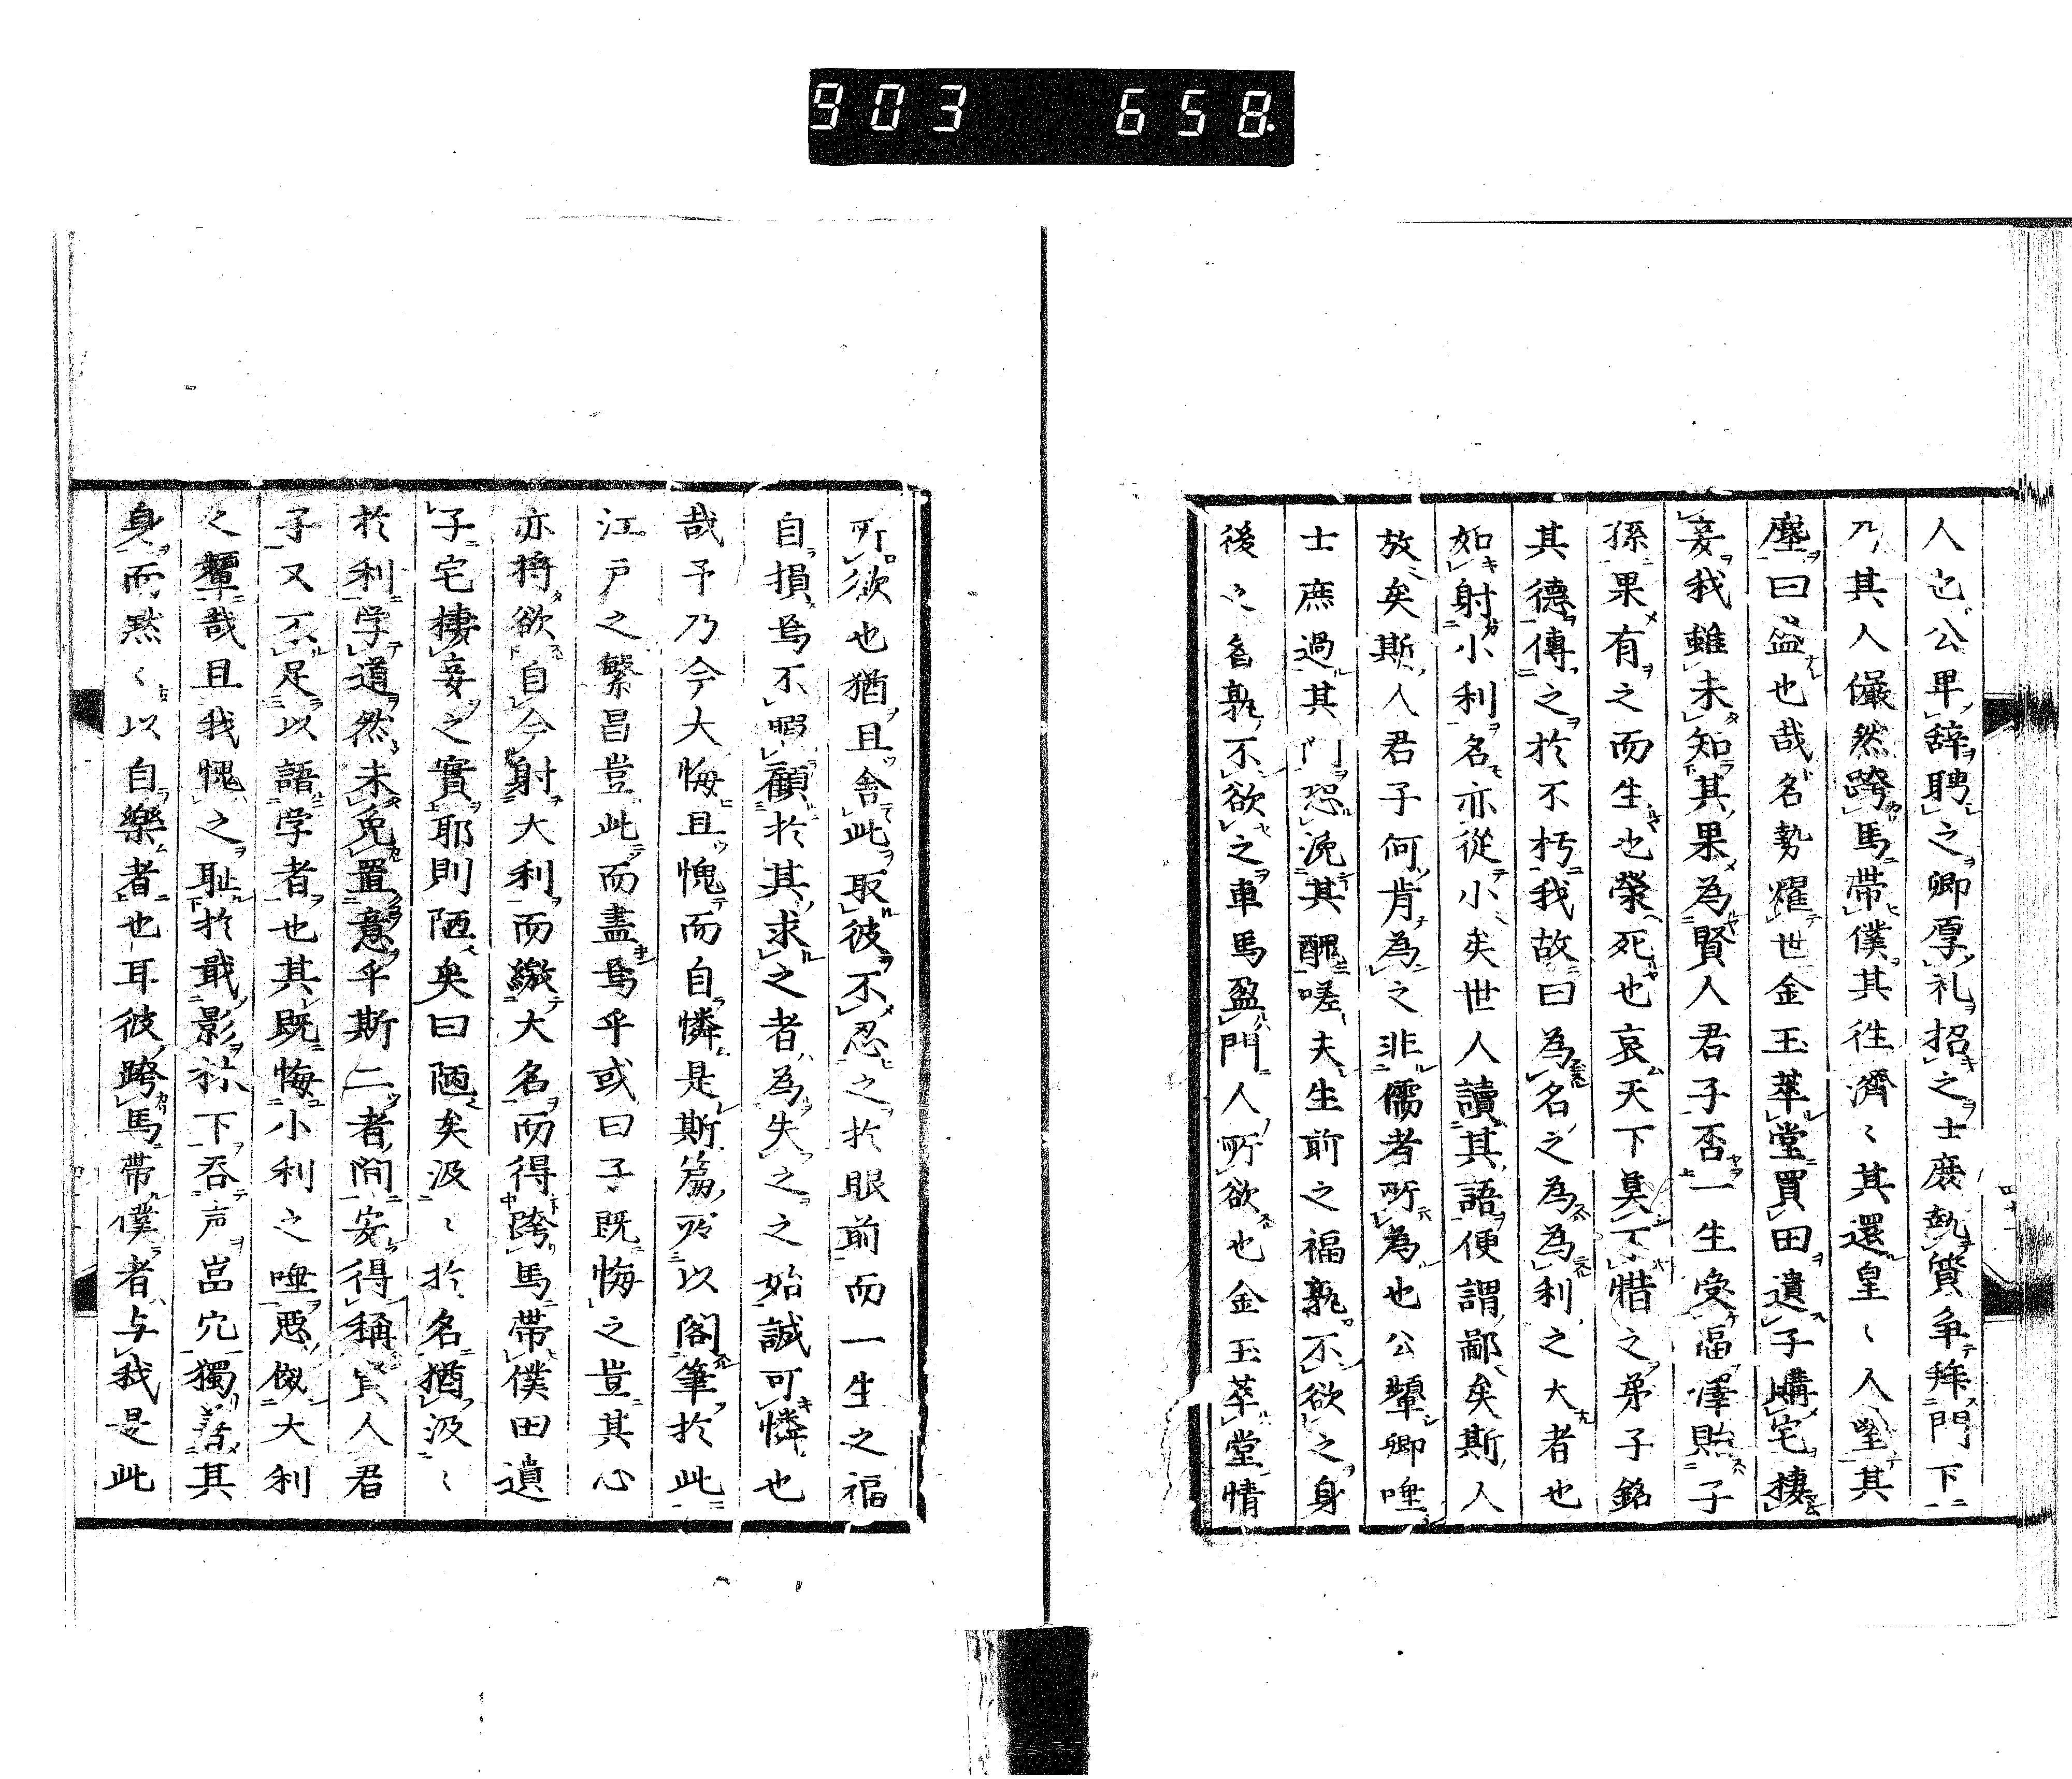 903 658
人也公卑辞聘之卿厚礼招之士庶執贄争拜門下
乃其人儼然跨馬帯僕其往濟〻其還皇〻人望其
塵曰盛也哉名勢燿世金玉萃堂買田遺子購宅棲
妾我雖未知其果為賢人君子否一生受福澤貽子
孫果有之而生也榮死也哀天下莫不惜之弟子銘
其德傳之於不朽我故曰為名之為為利之大者也
如射小利名亦從小矣世人讀其語便謂鄙矣斯人
放矣斯人君子何肯為之非儒者所為也公輩卿唾
士庶過其門恐浼其醜嗟夫生前之福孰不欲之身
後之名孰不欲之車馬盈門人所欲也金玉萃堂情
所欲也猶且舎此取彼不忍之於眼前而一生之福
自損焉不暇顧於其求之者為失之之始誠可憐也
哉予乃今大悔且愧而自憐是斯篇所以閣筆於此
江戸之繁昌豈此而盡焉乎或曰子既悔之豈其心
亦将欲自今射大利而繳大名而得跨馬帯僕田遺
子宅棲妾之實耶則陋矣曰陋矣汲〻於名猶汲〻
於利学道然未免置意乎斯二者間安得稱賢人君
子又不足以語学者也其既悔小利之唾惡傚大利
之顰哉且我愧之耻於戢影衤下呑声嵓穴獨善其
身而黙〻以自樂者也耳彼跨馬帯僕者与我是此